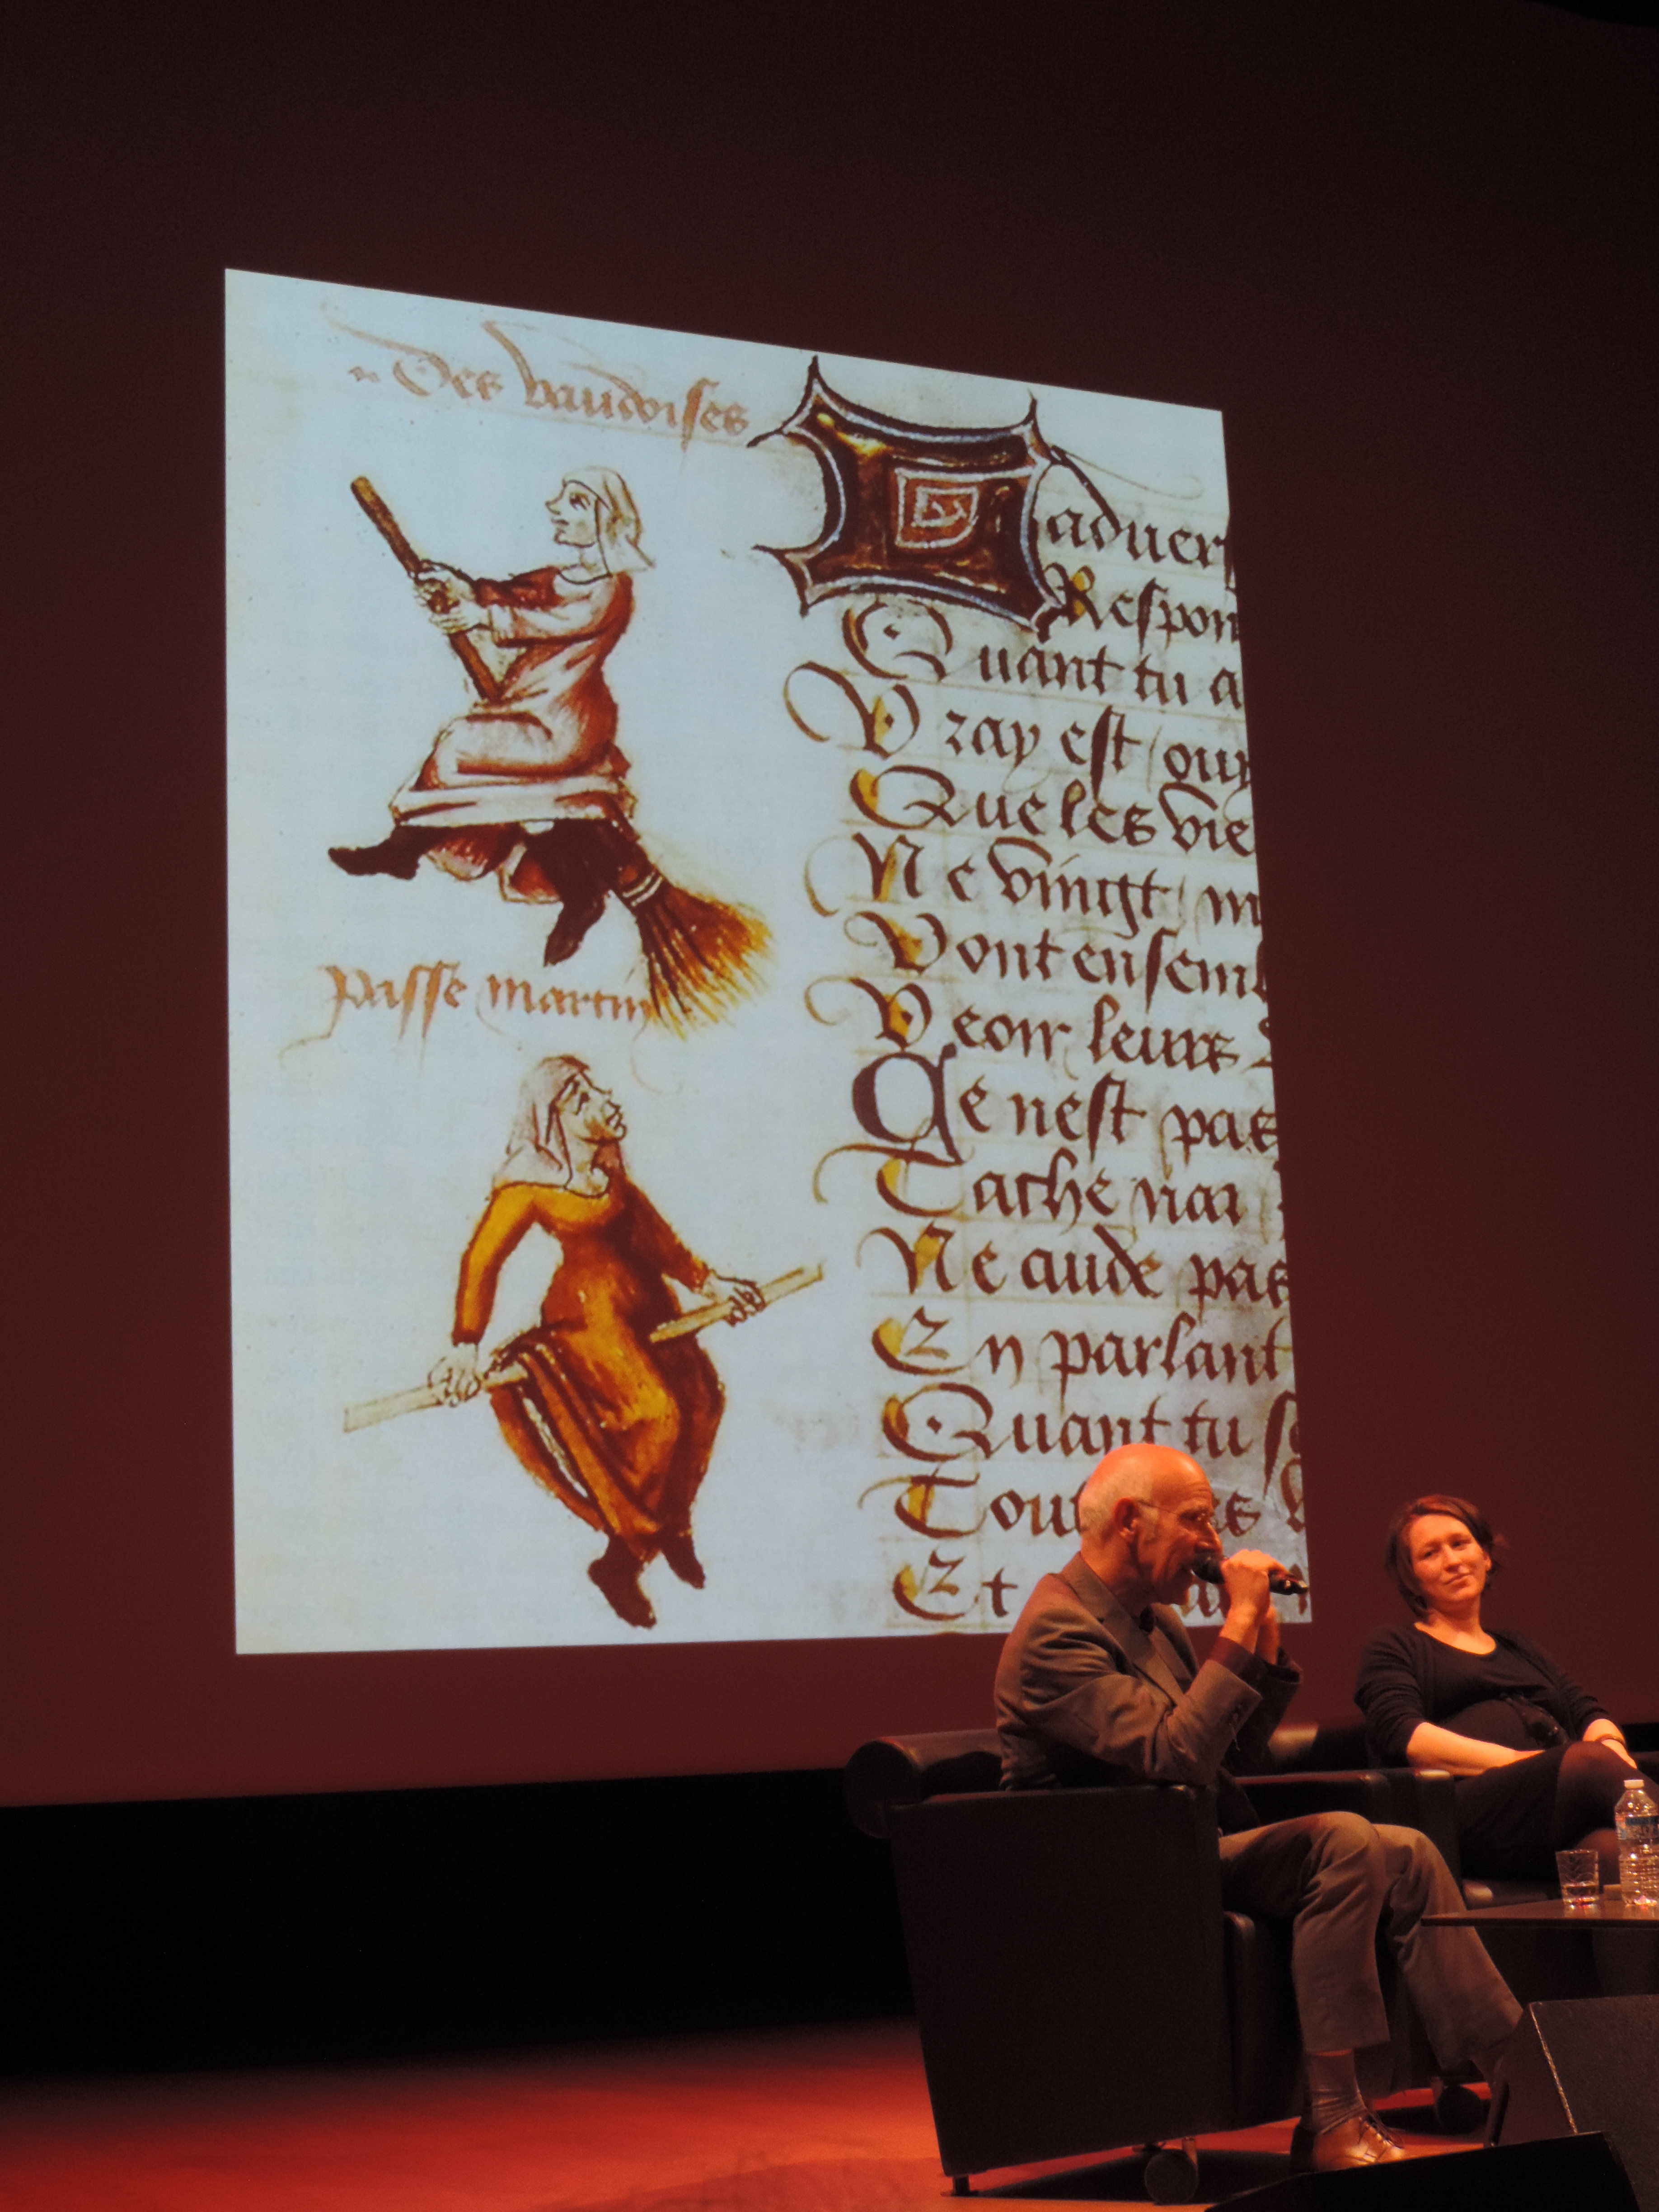 Des vaudoises
passe martin
aduer
Respon
Quant tu a
Vray est / ouy
Que les vie
Ne vingt / m
Vont ensem
Veoir leurs
Ce nest pas
Ne cuide pas
En parlant
Quant tu
Et